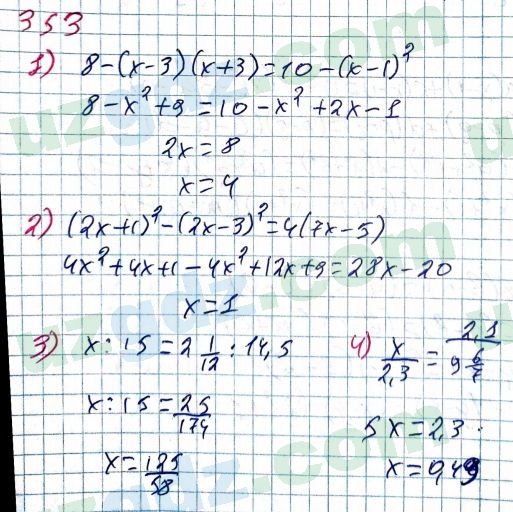 353
1) 8-(x-3)(x+3)=10-(x-1)²
8-x²+9=10-x²+2x-1
2x=8
x=4
2) (2x+1)²-(2x-3)²=4(7x-5)
4x²+4x+1-4x²+12x+9=28x-20
x=1
3) x:15=2 1/12:14,5
x:15=25/174
x=125/58
4) x/2,3=2,1/9 6/7
5x=2,3·
x=0,49